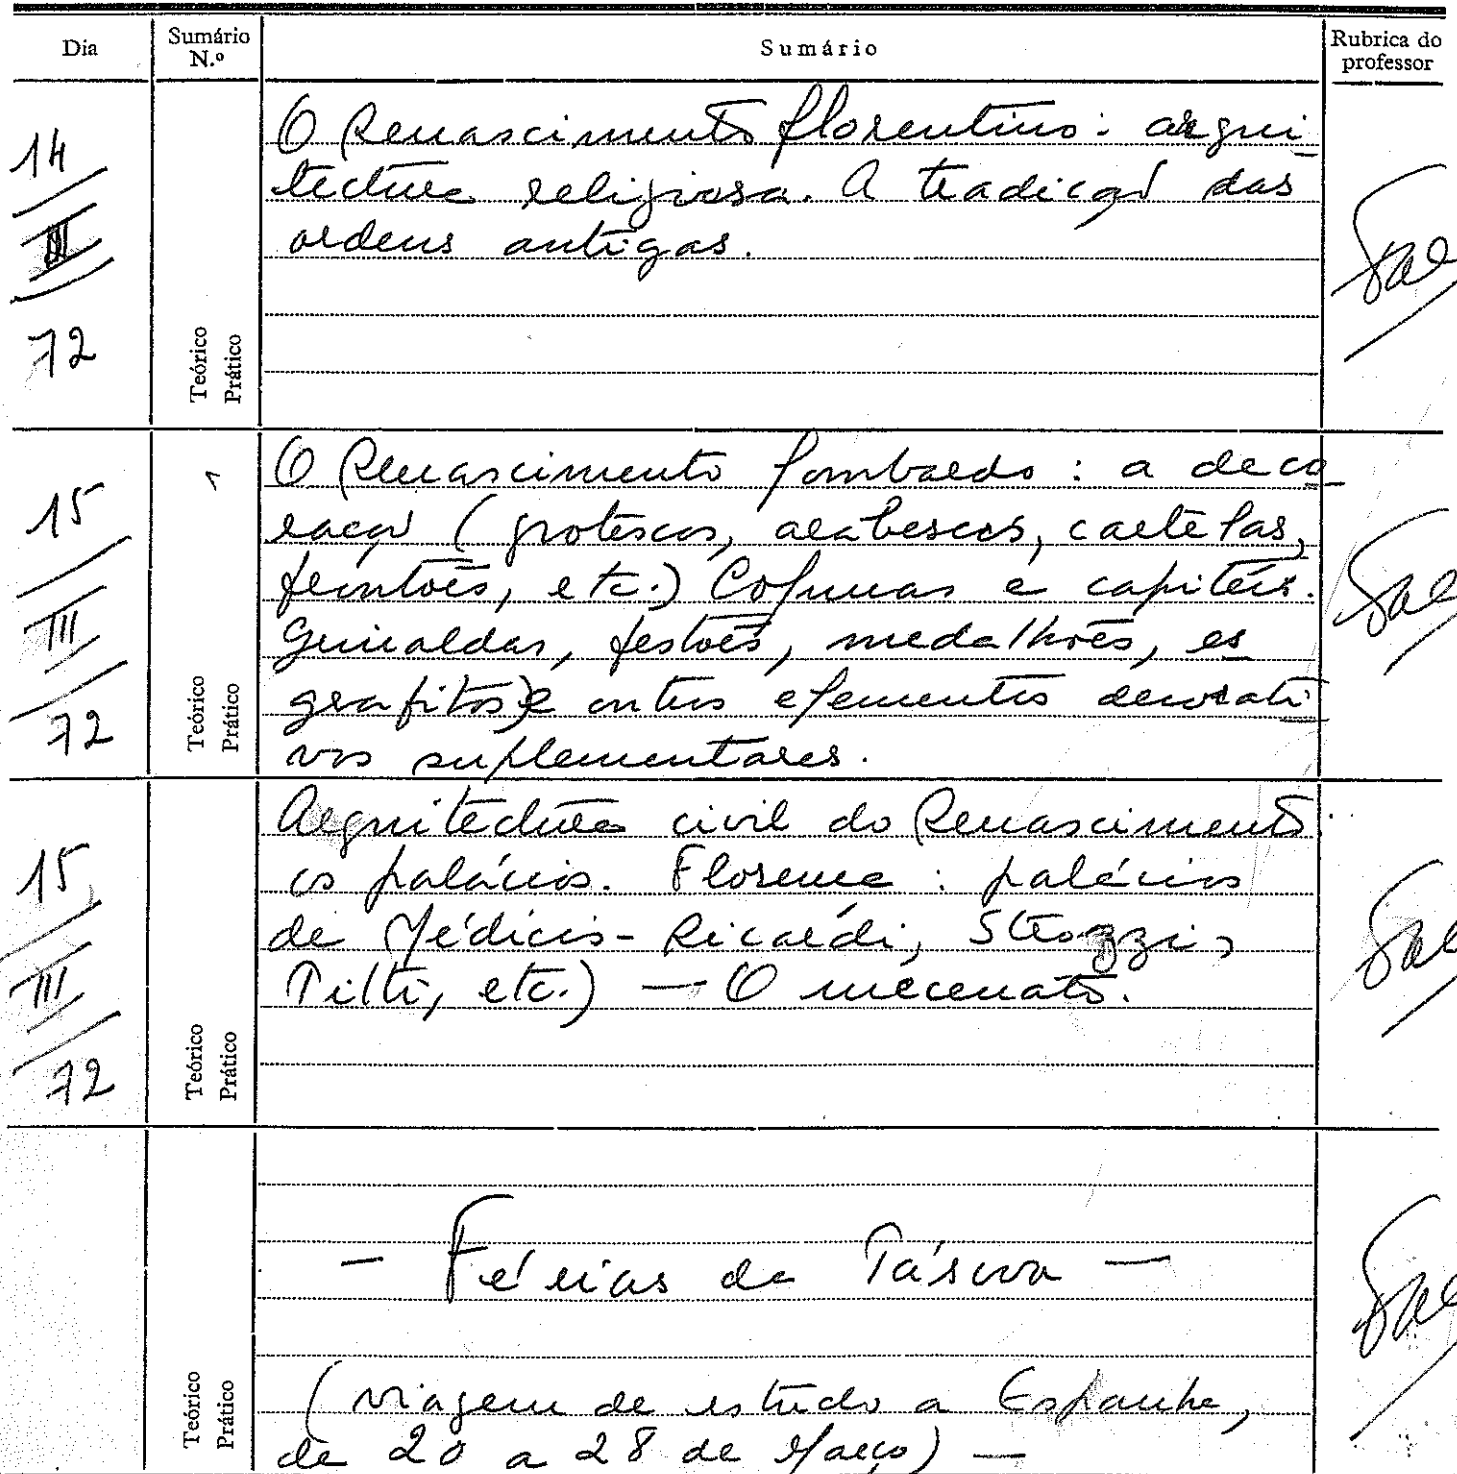 Dia Sumário N.º Sumário Rubrica do professor
14 III 72
O Renascimento florentino: arqui
tectura religiosa. A tradição das
ordens antigas.
Teórico
Prático
15 III 72
O Renascimento lombardo: a deco
ração (grotescos, arabescos, cartelas,
frontões, etc.) Colunas e capitéis.
Guirnaldas, festões, medalhões, es
grafitos) e outros elementos decorati
vos suplementares.
Teórico
Prático
15 III 72
Arquitectura civil do Renascimento:
os palácios. Florença: palácios
de Médicis-Ricardi, Strozzi,
Pitti, etc.) — O mecenato.
Teórico
Prático
— Férias da Páscoa —
(viagem de estudo a Espanha,
de 20 a 28 de Março) —
Teórico
Prático